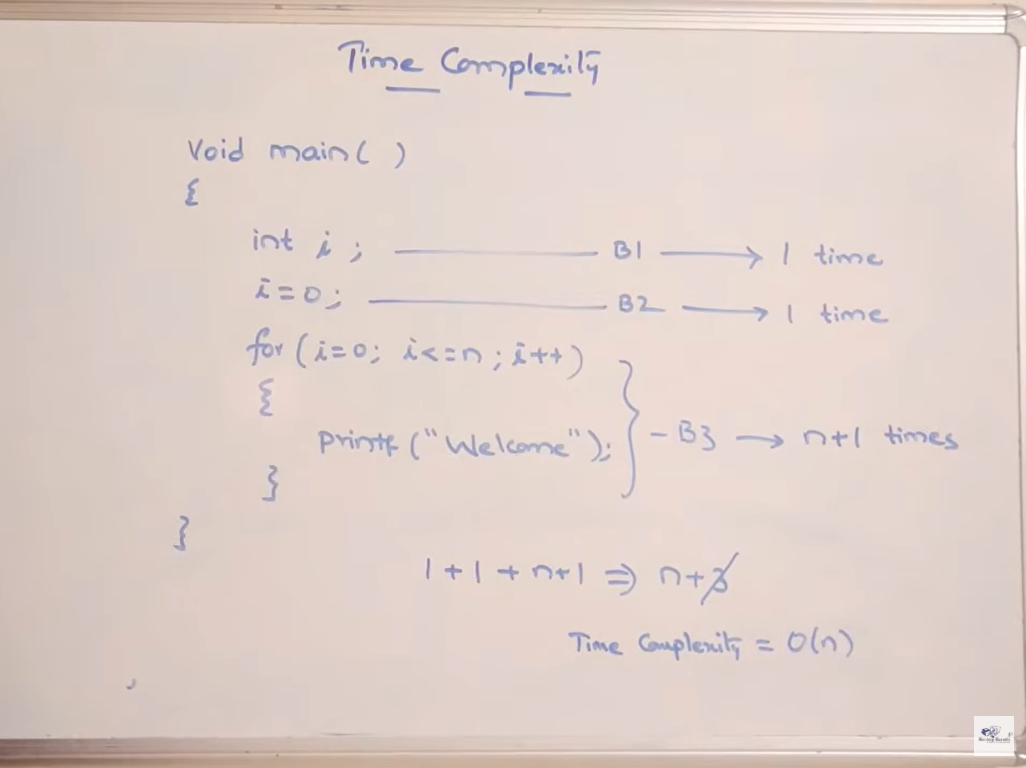 Time Complexity
Void main( )
{
int i ; B1 → 1 time
i=0; B2 → 1 time
for (i=0; i<=n ; i++)
{
printf ("Welcome"); } - B3 → n+1 times
}
}
1+1+n+1 ⇒ n+3
Time Complexity = O(n)